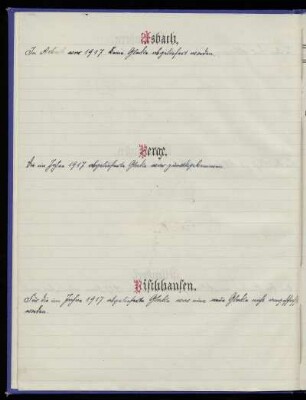 Asbach.
In Asbach war 1917 keine Glocke abgeliefert worden.
Berge.
Die im Jahre 1917 abgelieferte Glocke war zurückgekommen.
Bischhausen.
Für die im Jahre 1917 abgelieferte Glocke war eine neue Glocke nicht angeschafft
worden.